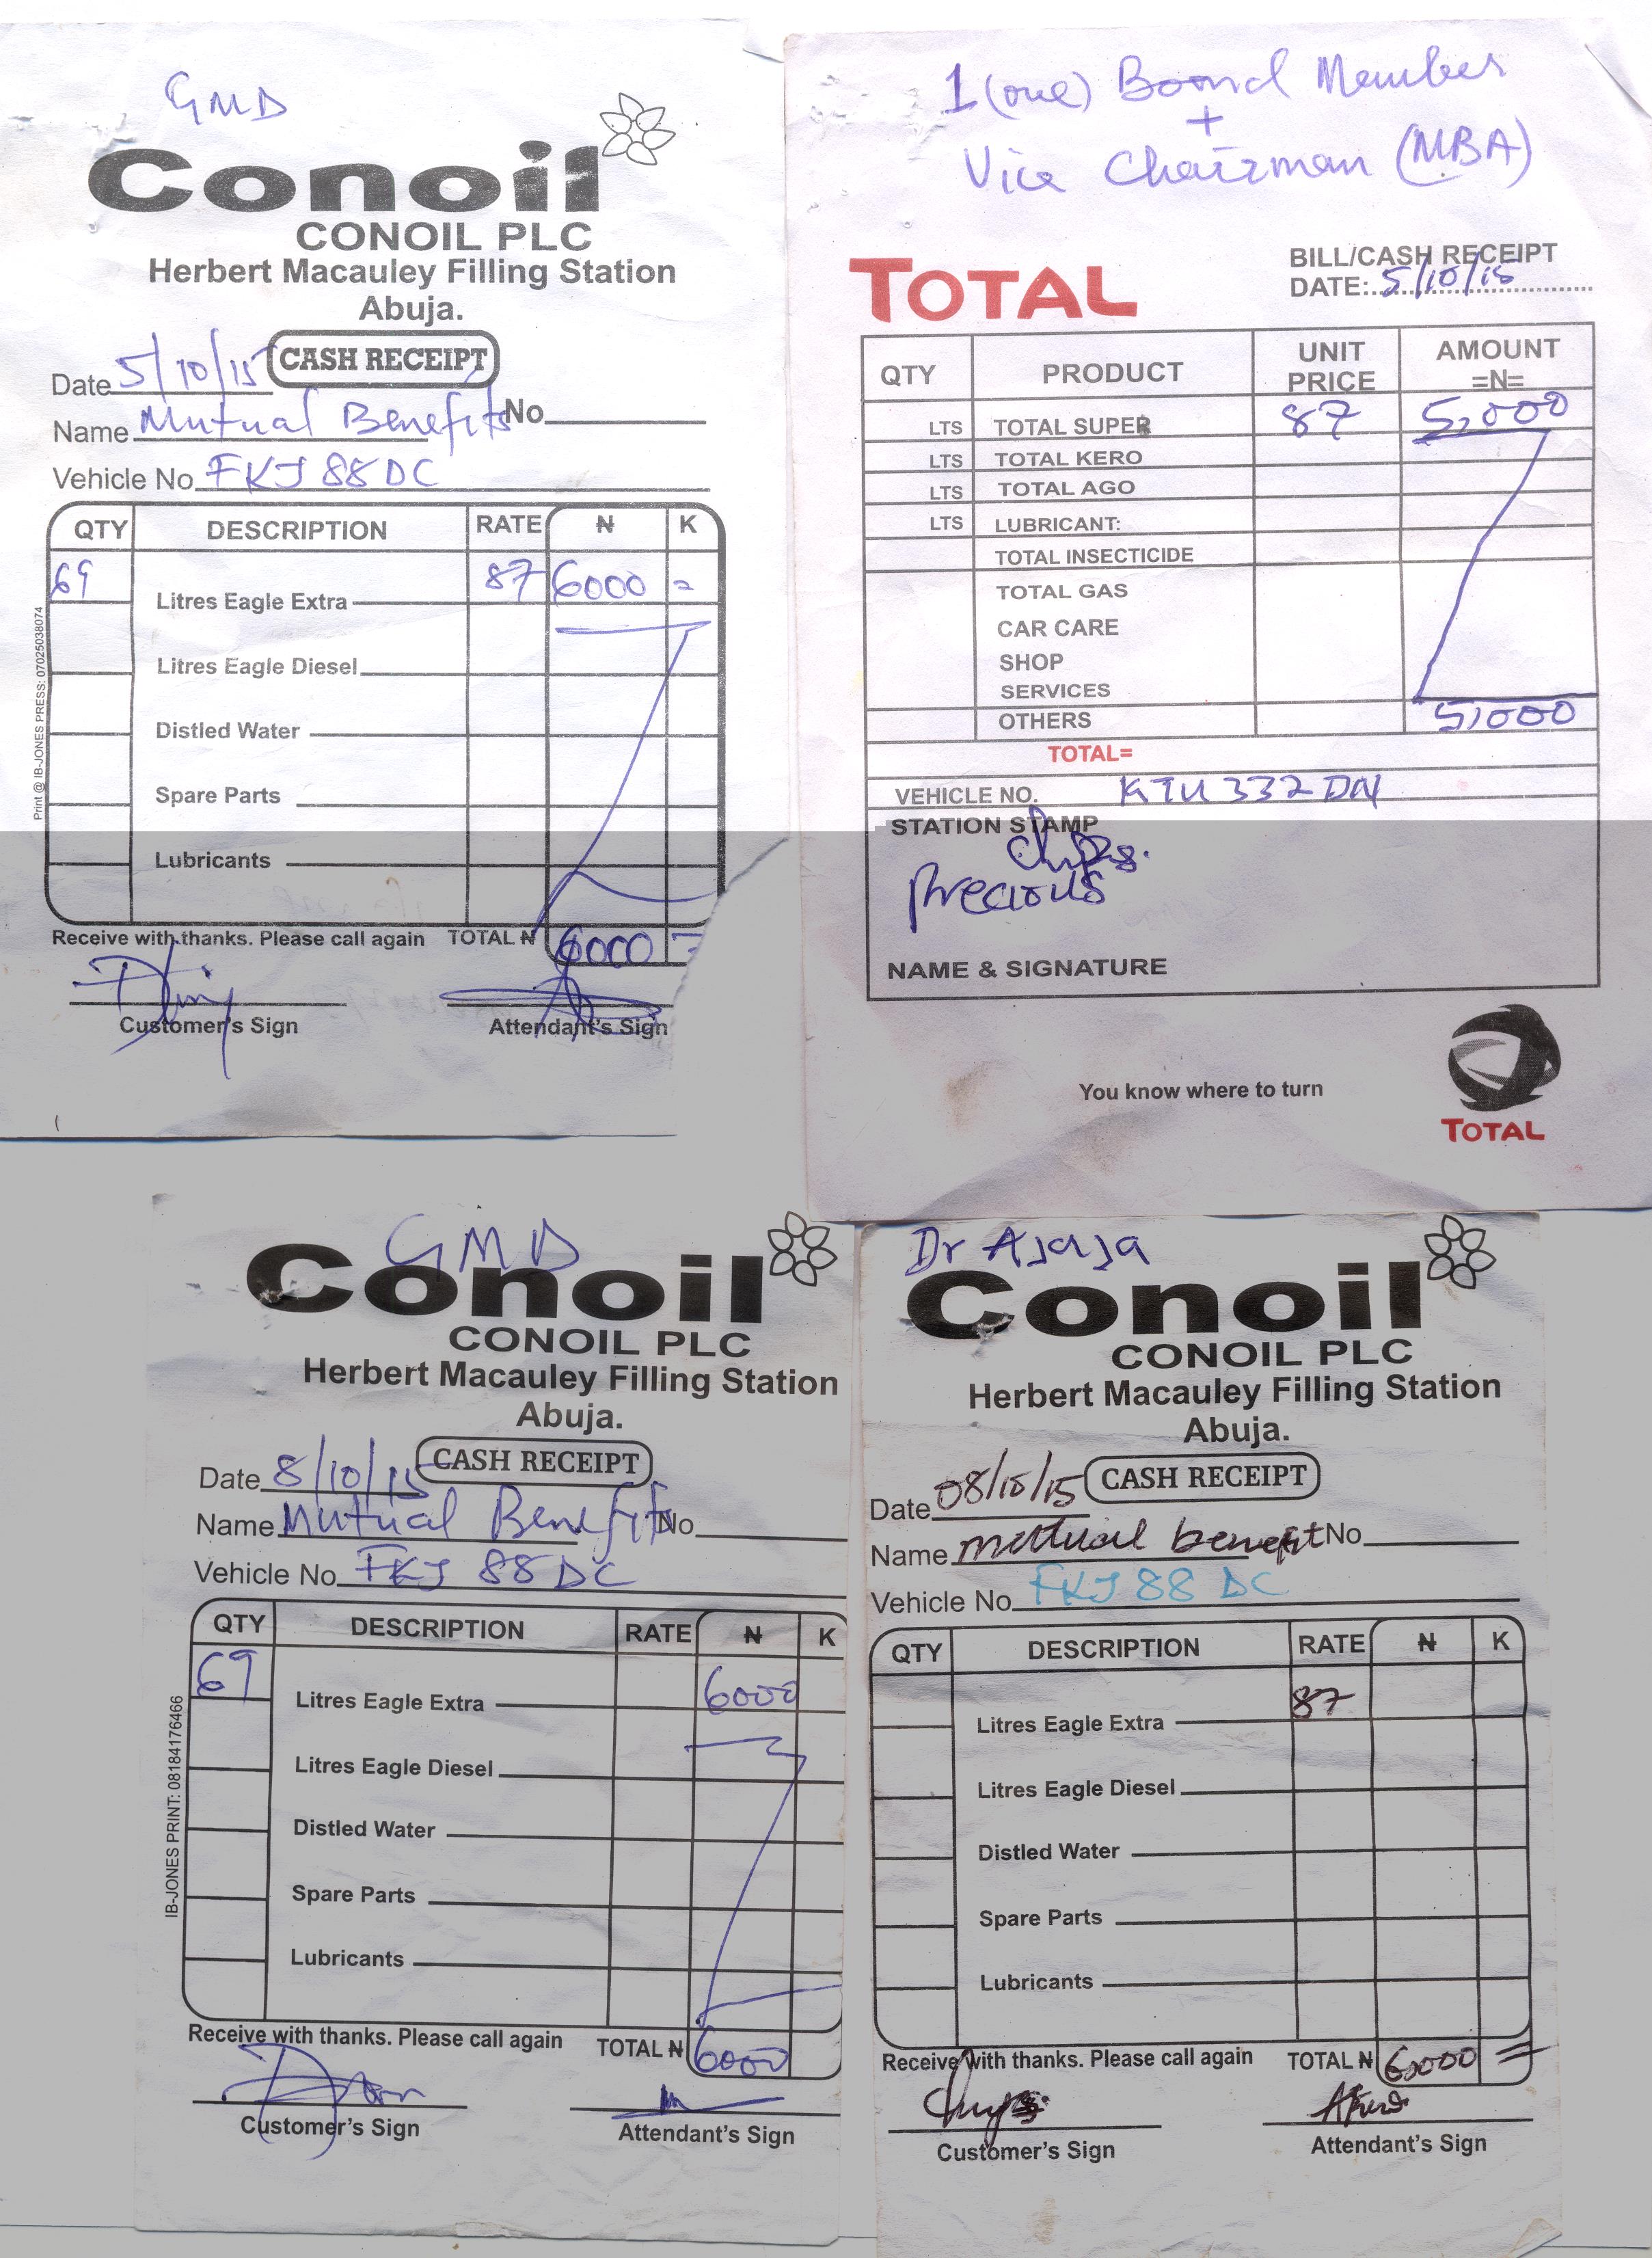 GMD
Conoil
CONOIL PLC
Herbert Macauley Filling Station
Abuja.
CASH RECEIPT
Date 5/10/15
Name Mutual Benefits No
Vehicle No. FKJ 88 DC
QTY DESCRIPTION RATE ₦ K
69 Litres Eagle Extra 87 6000 =
Litres Eagle Diesel
Distled Water
Spare Parts
Lubricants
Receive with thanks. Please call again TOTAL ₦ 6000 =
Customer's Sign Attendant's Sign
Print @ IB-JONES PRESS: 07025038074
1 (one) Board Member
+
Vice Chairman (MBA)
TOTAL
BILL/CASH RECEIPT
DATE: 5/10/15
QTY PRODUCT UNIT PRICE AMOUNT =N=
LTS TOTAL SUPER 87 5,000
LTS TOTAL KERO
LTS TOTAL AGO
LTS LUBRICANT:
TOTAL INSECTICIDE
TOTAL GAS
CAR CARE
SHOP
SERVICES
OTHERS 5,000
TOTAL=
VEHICLE NO. KTU 332 DN
STATION STAMP
Precious
NAME & SIGNATURE
You know where to turn
TOTAL
GMD
Conoil
CONOIL PLC
Herbert Macauley Filling Station
Abuja.
CASH RECEIPT
Date 8/10/15
Name Mutual Benefits No
Vehicle No. FKJ 88 DC
QTY DESCRIPTION RATE ₦ K
69 Litres Eagle Extra 6000
Litres Eagle Diesel
Distled Water
Spare Parts
Lubricants
Receive with thanks. Please call again TOTAL ₦ 6000
Customer's Sign Attendant's Sign
IB-JONES PRINT: 08184176466
Dr Ajaja
Conoil
CONOIL PLC
Herbert Macauley Filling Station
Abuja.
CASH RECEIPT
Date 08/10/15
Name mutual benefit No
Vehicle No. FKJ 88 DC
QTY DESCRIPTION RATE ₦ K
Litres Eagle Extra 87
Litres Eagle Diesel
Distled Water
Spare Parts
Lubricants
Receive with thanks. Please call again TOTAL ₦ 6,000 =
Customer's Sign Attendant's Sign